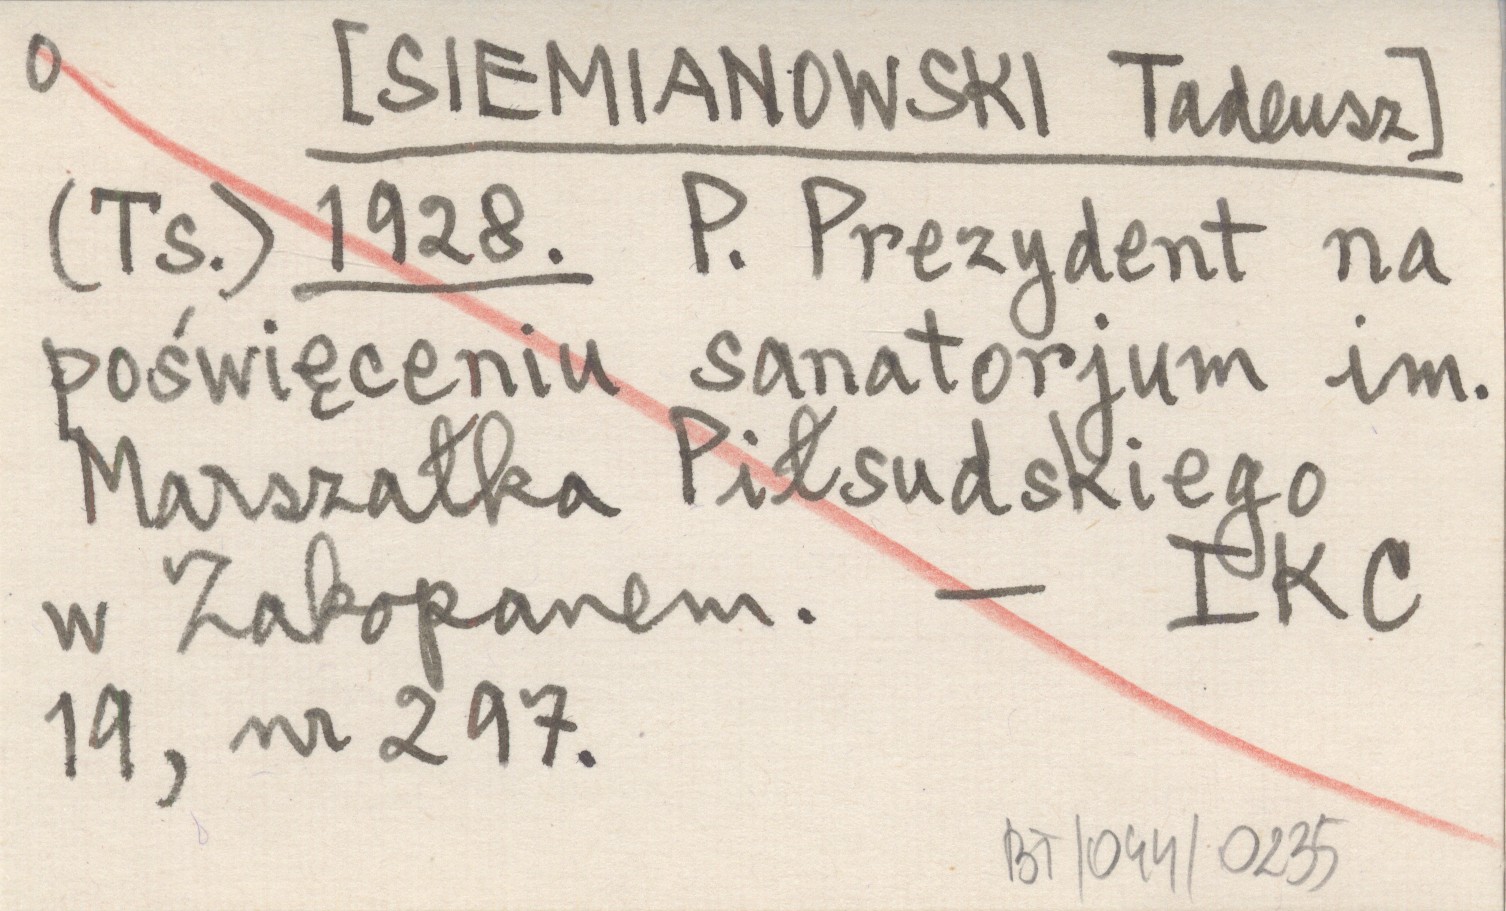 0 [SIEMIANOWSKI Tadeusz]
(Ts.) 1928. P. Prezydent na
poświęceniu sanatorjum im.
Marszałka Piłsudskiego
w Zakopanem. — IKC
19, nr 297.
BT/044/0235